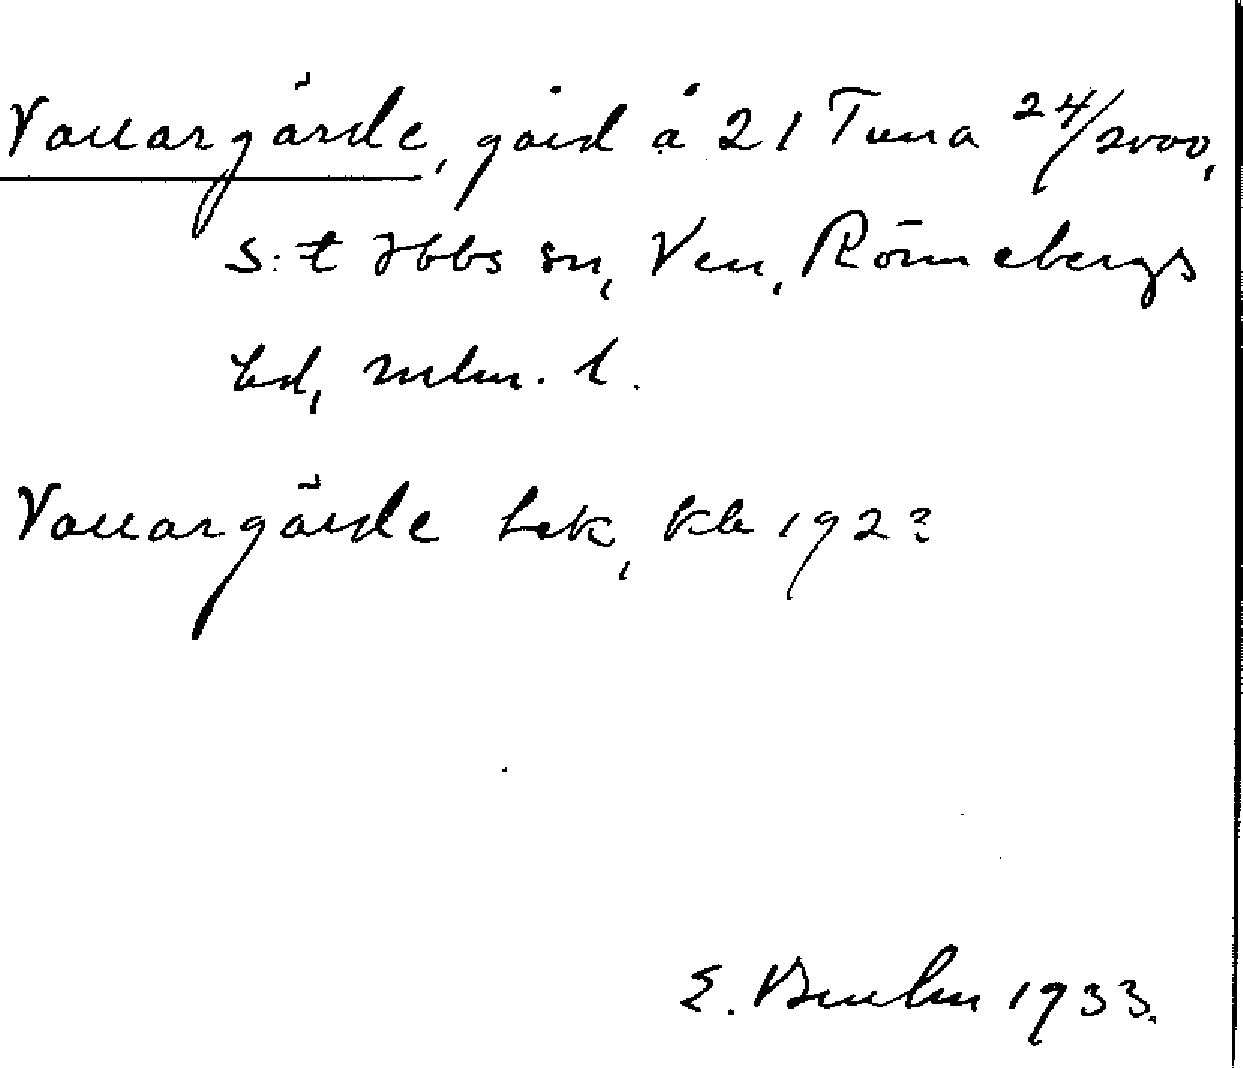 Vallargärde, gård å 21 Tuna 24/2000,
S:t Ibbs sn, Ven, Rönnebergs
hd, Mlm. l.
Vallargärde bek, kb 192?
E. 1933.